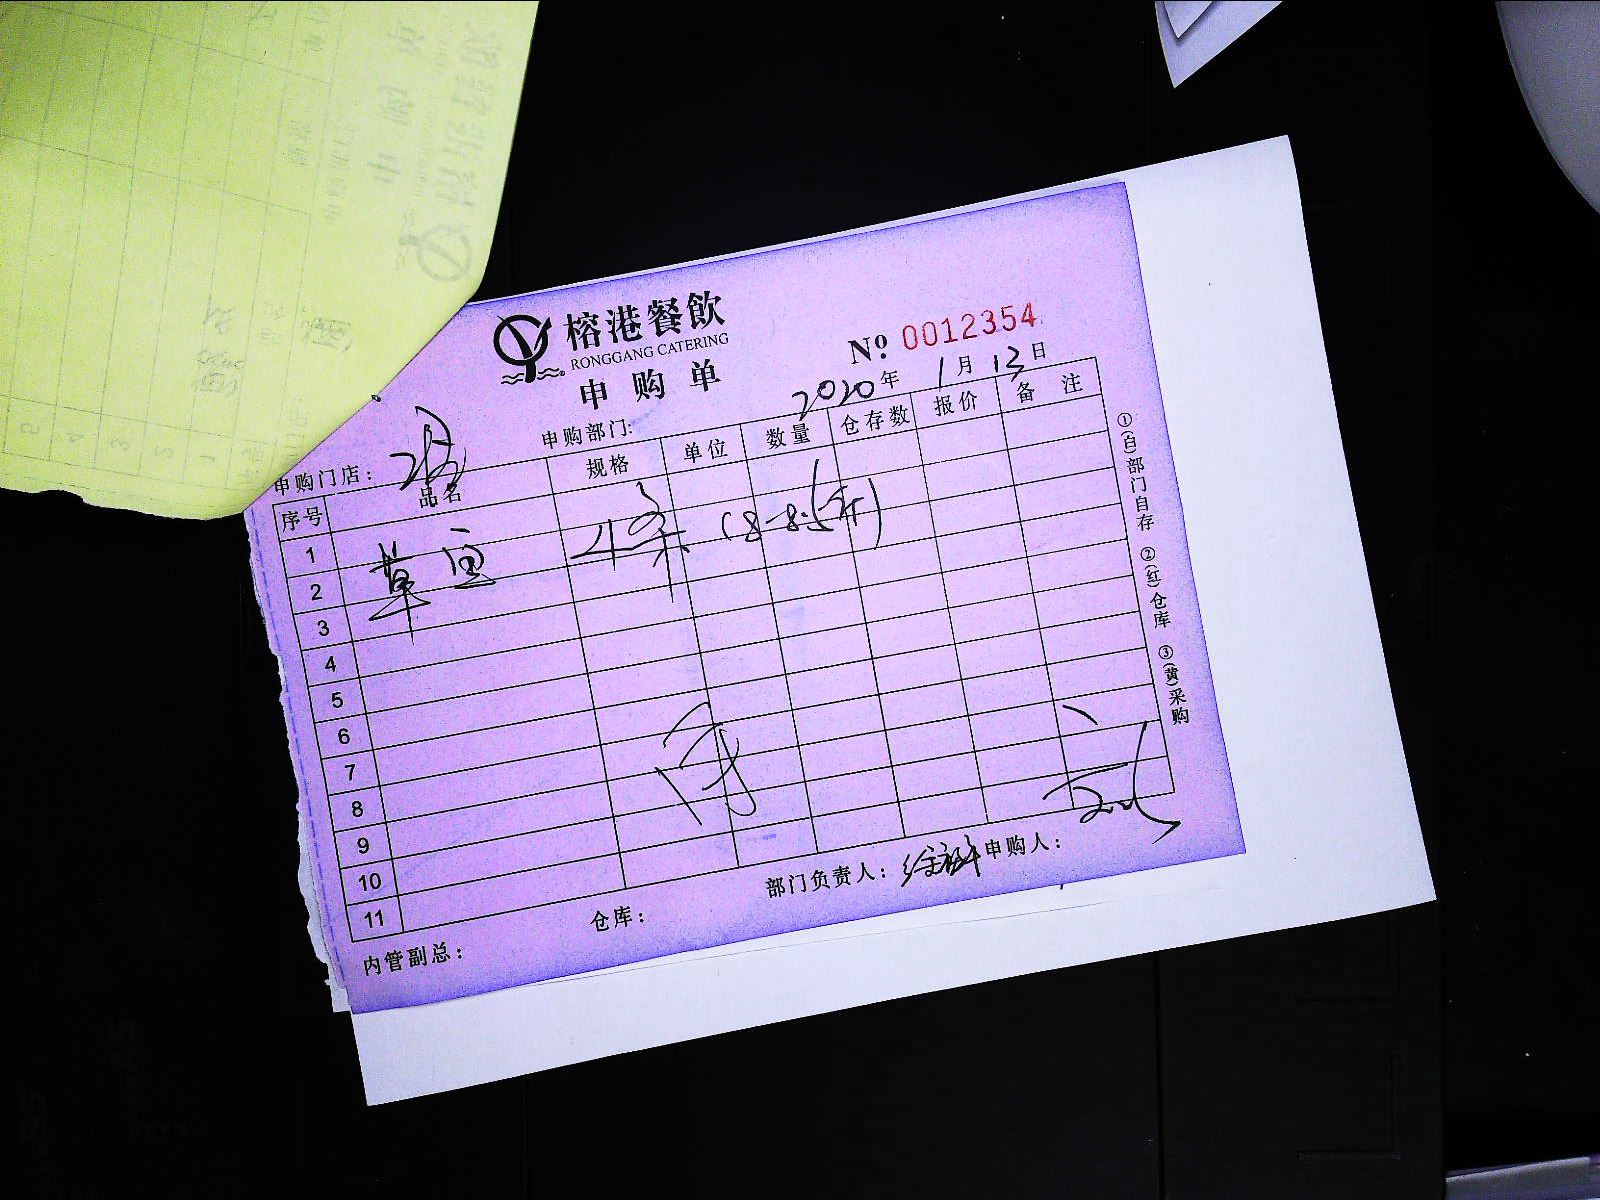 榕港餐飲
RONGGANG CATERING
申购单
№ 0012354
2020年1月13日
申购门店： 申购部门:
序号 品名 规格 单位 数量 仓存数 报价 备注
1
2 草鱼 4条 (8-8.5斤)
3
4
5
6
7
8
9
10
11
内管副总： 仓库： 部门负责人： 申购人：
①(白)部门自存 ②(红)仓库 ③(黄)采购